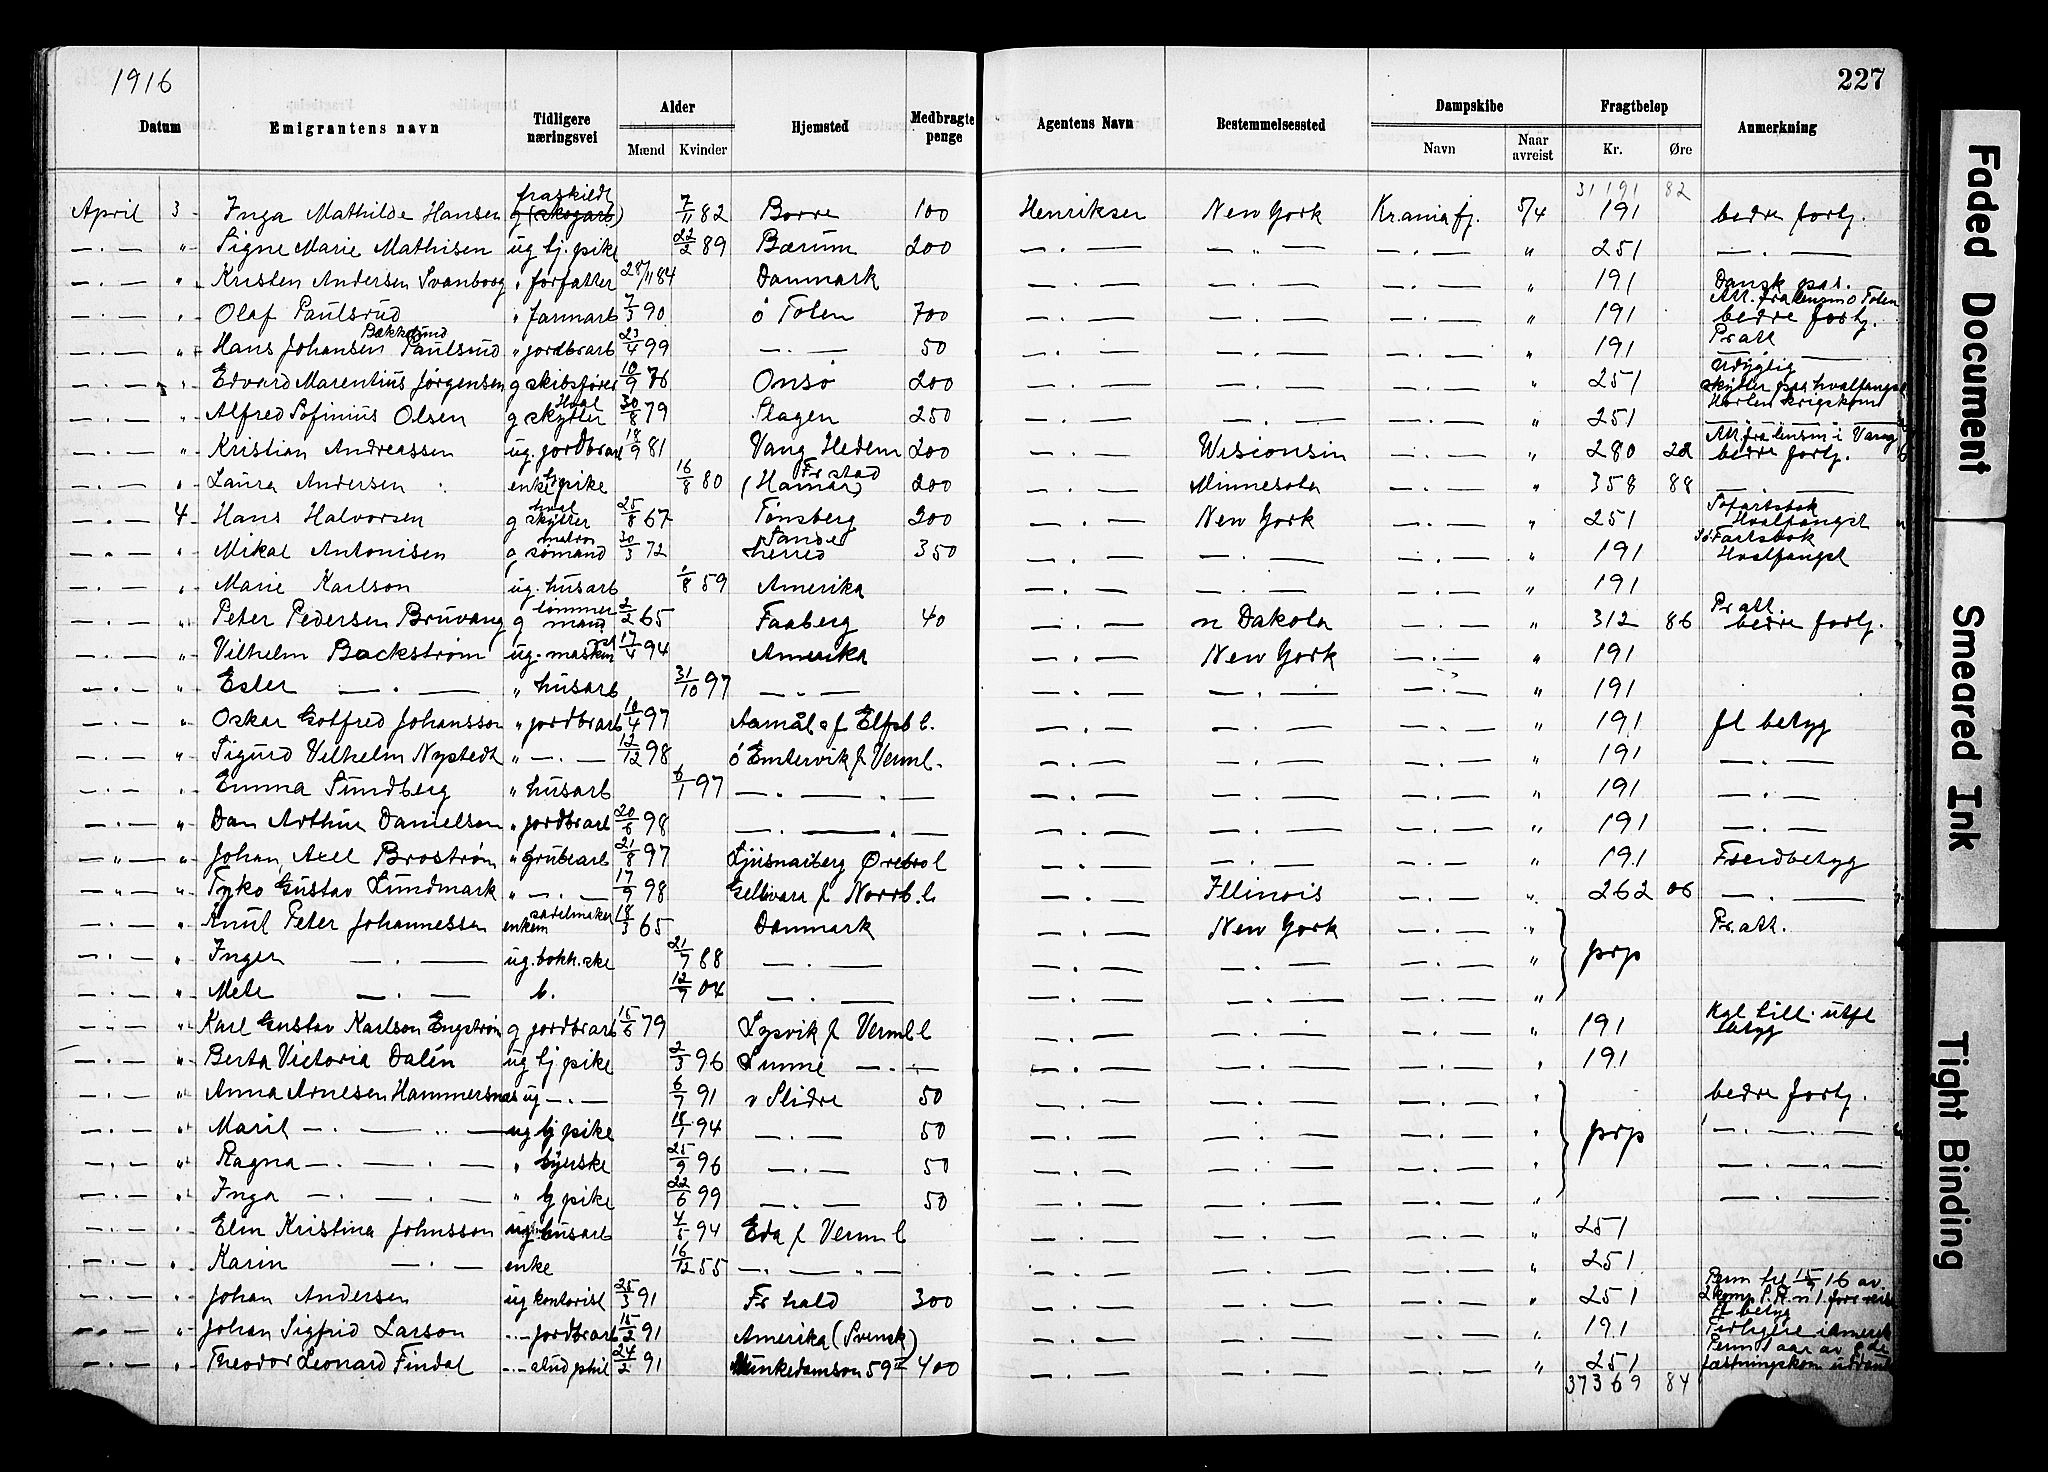 1916
227
Datum Emigrantens navn Tidligere næringsvei Alder Mænd Kvinder Hjemsted Medbragte penge Agentens Navn Bestemmelsessted Dampskibe Navn Naar avreist Fragtbeløp Kr. Øre Anmerkning
31 191 82
April 3 Inga Mathilde Hansen fraskildt g (skogarb) 7/11 82 Borre 100 Henriksen New York Kraniafj. 5/4 191 bedre fortj.
— . — " Signe Marie Mathisen ug tj. pike 22/2 89 Bærum 200 — . — — " — — . — " 251 — . —
— . — " Kristen Andersen Svanborg " forfatter 28/11 84 Danmark — . — — . — — . — " 191 Dansk pas.
— . — " Olaf Paulsrud " farmarb 7/3 90 ö Toten 700 — . — — . — — . — " 191 Att. fra lensm ö Toten bedre fortj.
— . — " Hans Johansen Bakkelund Paulsrud " jordbrarb 23/4 99 — . — 50 — . — — . — — . — " 191 Pr att
— . — " Edvard Marentius Jørgensen g skibsfører 10/9 76 Onsö 200 — . — — . — — . — " 251 Udygtig
— . — " Alfred Sofinius Olsen g Hval skytter 30/8 79 Slagen 250 — . — — . — — . — " 251 skytter paa hvalfangst
— . — " Kristian Andreassen ug. jordbrarb 18/9 81 Vang Hedem 200 — . — Wisconsin — . — " 280 22 Att. fra lensm i Vang bedre fortj.
— . — " Laura Andersen enke tj pike 16/8 80 Fr stad (Hamar) 200 — . — Minnesota — . — " 358 88 — . —
— . — 4 Hans Halvorsen g hval skytter 25/8 67 Tønsberg 200 — . — New York — . — " 251 Söfartsbok Hvalfangst
— . — " Mikal Antonisen g matros sømand 30/3 72 Sande herred 350 — . — — . — — . — " 191 Sö.Fartsbok Hvalfangst
— . — " Marie Karlson ug. husarb 1/8 59 Amerika — . — — . — — . — " 191
— . — " Peter Pedersen Bruvang g tømmer mand 2/2 65 Faaberg 40 — . — n Dakota — . — " 312 86 Pr att. bedre fortj.
— . — " Vilhelm Backstrøm ug. maskin 17/4 94 Amerika — . — New York — . — " 191
— . — " Ester — . — " husarb 31/10 97 — . — — . — — . — — . — " 191
— . — " Oskar Gotfred Johansson " jordbrarb 10/4 97 Aamål s f Elfsb l. — . — — . — — . — " 191 fl betyg
— . — " Sigurd Vilhelm Nystedt " — . — 12/12 98 ö Emtervik f Verml. — . — — . — — . — " 191 — . —
— . — " Emma Sundberg " husarb 6/1 97 — . — . — — . — — . — — . — " 191 — . —
— . — " Dan Arthur Danielson " jordbrarb 20/6 98 — . — . — — . — — . — — . — " 191 — . —
— " — " Johan Axel Broström " grubearb 21/8 97 Ljusnarberg Örebro l — . — — . — — . — " 191 Freidbetyg
— " — " Tyko Gustav Lundmark " — . — 17/9 98 Gellivara f Norrb. l — . — Illinois — . — " 262 06 — . —
— . — " Knut Peter Johannessen enkem sadelmaker 18/3 65 Danmark — . — New York — . — " Pr. att.
— . — " Inger — . — ug. bokh. ske 21/7 88 — . — — . — — . — — . — " prp
— . — " Mete — . — b. 12/7 04 — . — — . — — . — — . — "
— . — " Karl Gustav Karlson Engström g jordbrarb 15/6 79 Lysvik f Verml l — . — — . — — . — " 191 Kgl till. utfl betyg
— . — " Berta Victoria Dalén ug tj pike 2/3 96 Sunne — . — — . — — . — — . — " 191
— . — " Anna Arnesen Hammersnæs ug — . — 6/7 91 v Slidre 50 — . — — . — — . — " bedre fortj.
— . — " Marit — . — . — ug tj pike 18/1 94 — . — 50 — . — — . — — . — " prp — . — . —
— . — " Ragna — . — . — " syerske 25/9 96 — . — 50 — . — — . — — . — " — . — . —
— . — " Inga — . — . — " tj pike 22/6 99 — . — 50 — . — — . — — . — " — . — . —
— . — " Elin Kristina Johnsson ug husarb 4/5 94 Eda f Verml — . — — . — — . — " 251
— . — " Karin — . — enke 16/12 55 — . — " — — . — — . — — . — " 251
— . — " Johan Andersen ug kontorist 25/3 91 Fr hald 300 — . — — . — — . — " 251 Perm til 15/9 16 av 2 komp. I.R. n 1.
— . — " Johan Sigfrid Larson — " — jordbrarb 15/2 91 Amerika (Svensk) — . — — . — — . — " 191 fl betyg Tidligere i amerik
— . — " Theodor Leonard Findal — " — stud phil 24/2 91 Munkedamson 59 II 400 — . — — . — — . — " 251 Perm 1 aar av fæstningskom
37369 84
Faded Document
Smeared Ink
Tight Binding